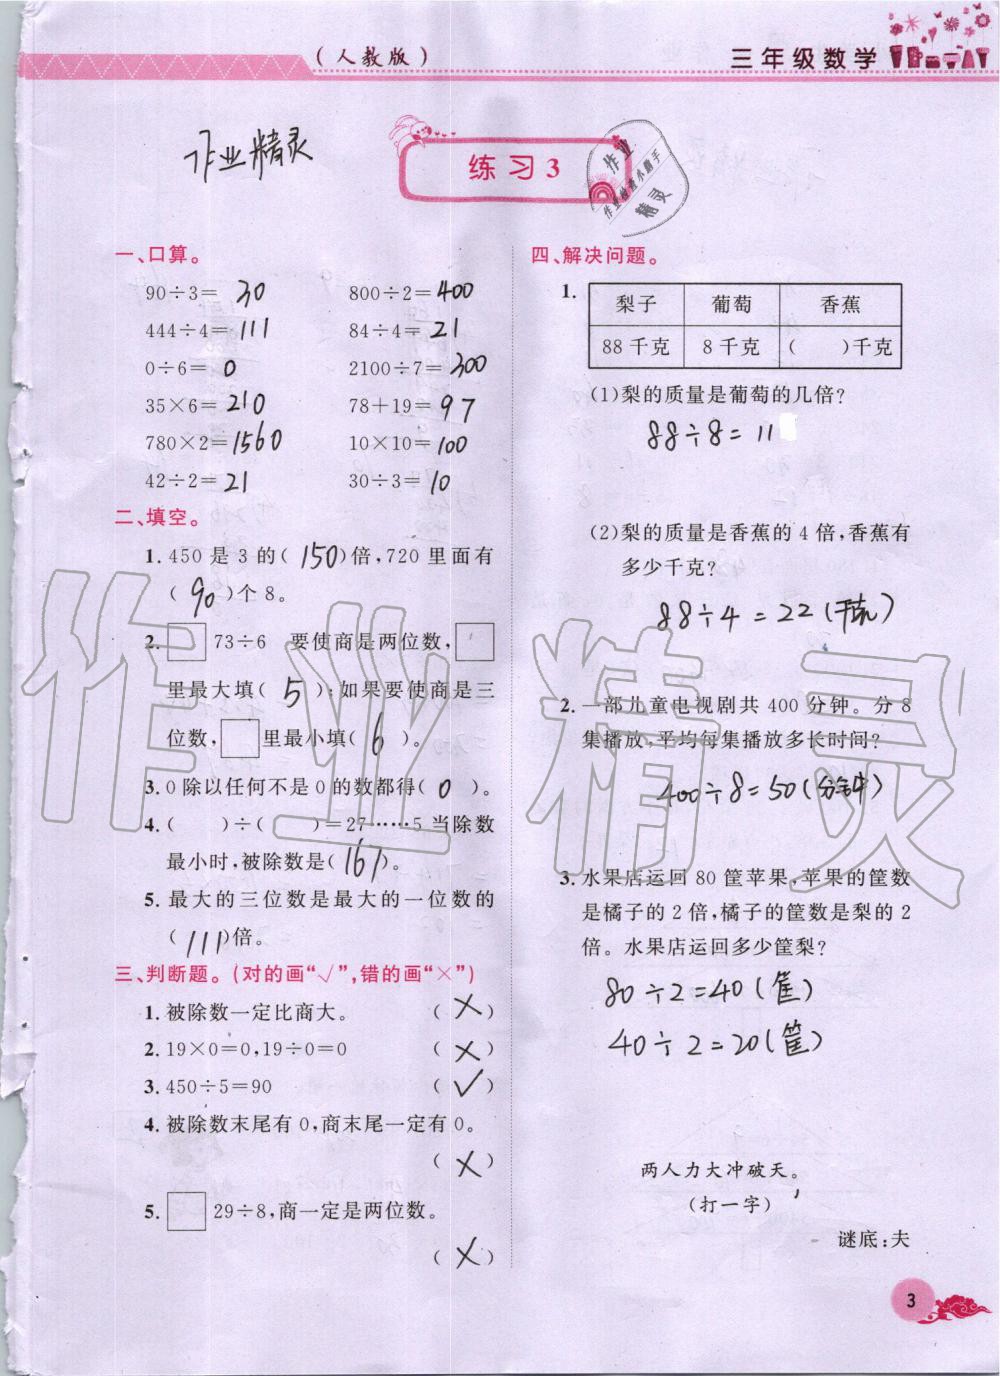 (人教版)
三年级数学
作业精灵
练习3
作业
作业检查小助手
精灵
一、口算。
90÷3= 30 800÷2= 400
444÷4= 111 84÷4= 21
0÷6= 0 2100÷7= 300
35×6= 210 78+19= 97
780×2= 1560 10×10= 100
42÷2= 21 30÷3= 10
二、填空。
1. 450 是 3 的( 150 )倍,720 里面有
( 90 )个 8。
2. □73÷6 要使商是两位数,□
里最大填( 5 );如果要使商是三
位数,□里最小填( 6 )。
3. 0 除以任何不是 0 的数都得( 0 )。
4. ( )÷( )=27……5 当除数
最小时,被除数是( 167 )。
5. 最大的三位数是最大的一位数的
( 111 )倍。
三、判断题。(对的画“√”,错的画“×”)
1. 被除数一定比商大。 ( × )
2. 19×0=0,19÷0=0 ( × )
3. 450÷5=90 ( √ )
4. 被除数末尾有 0,商末尾一定有 0。
( × )
5. □29÷8,商一定是两位数。
( × )
四、解决问题。
1. 梨子 葡萄 香蕉
88 千克 8 千克 ( )千克
(1)梨的质量是葡萄的几倍?
88÷8=11
(2)梨的质量是香蕉的 4 倍,香蕉有
多少千克?
88÷4=22(千克)
2. 一部儿童电视剧共 400 分钟。分 8
集播放,平均每集播放多长时间?
400÷8=50(分钟)
3. 水果店运回 80 筐苹果,苹果的筐数
是橘子的 2 倍,橘子的筐数是梨的 2
倍。水果店运回多少筐梨?
80÷2=40(筐)
40÷2=20(筐)
两人力大冲破天。
(打一字)
谜底:夫
3
作业精灵